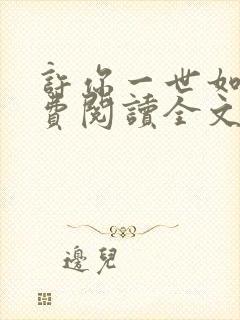 許你一世如
費閱讀全文
邊兒